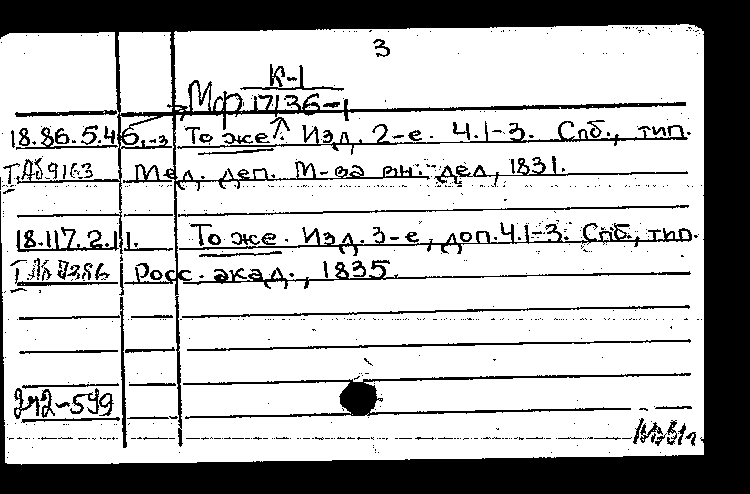 3
К-1
Мф 17136-1
18.86.5.46,1-3 То же. Изд. 2-е. Ч.1-3. Спб., тип.
Мед. деп. М-ва вн. дел, 1831.
18.117.2.11. То же. Изд. 3-е, доп. Ч.1-3. Спб., тип.
Росс. акад., 1835.
242-599